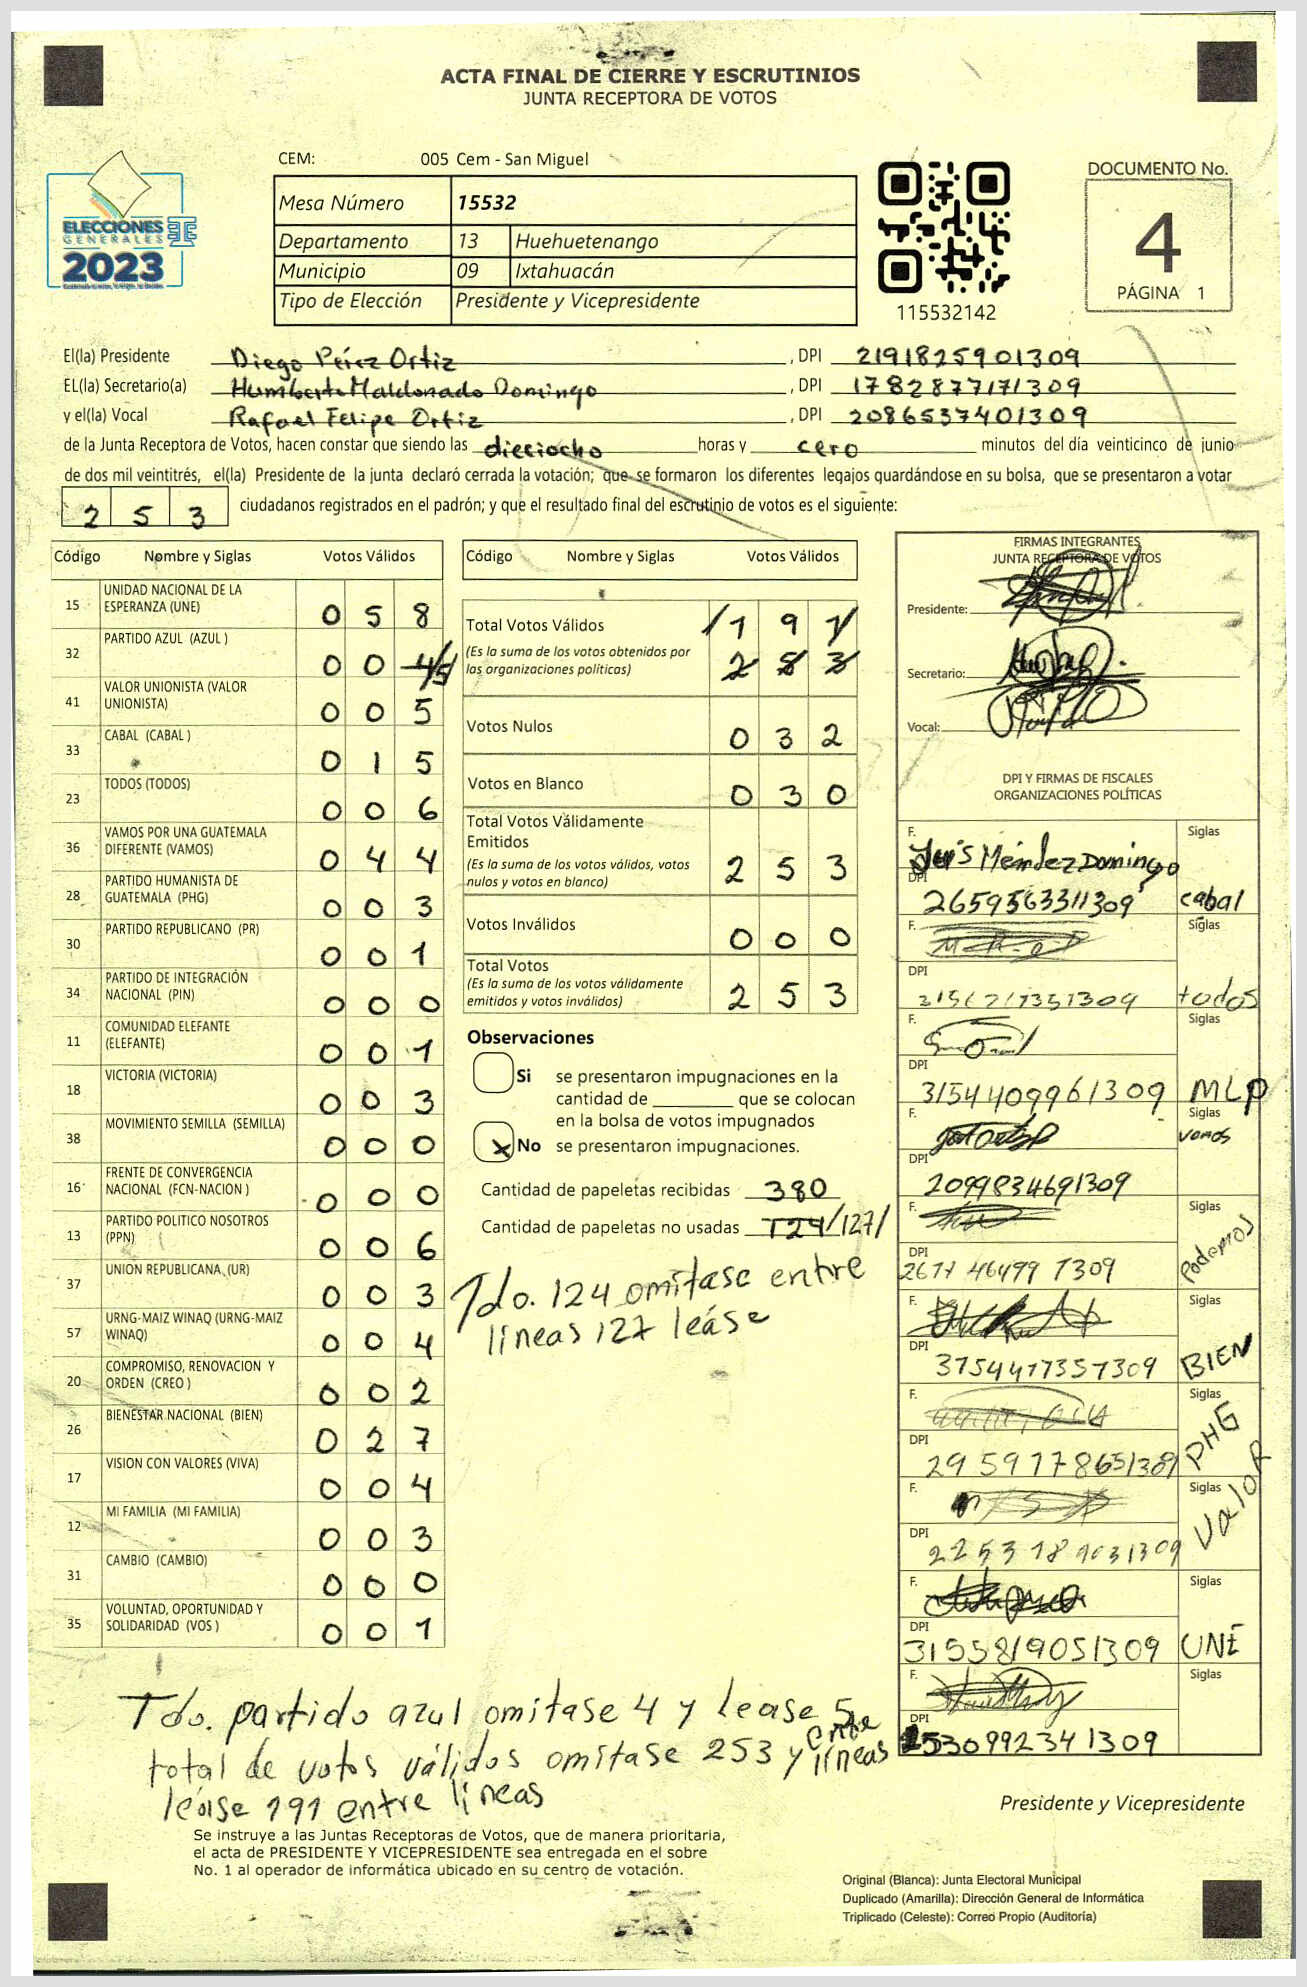 ACTA FINAL DE CIERRE Y ESCRUTINIOS
JUNTA RECEPTORA DE VOTOS
CEM: 005 Cem - San Miguel
Mesa Número 15532
Departamento 13 Huehuetenango
Municipio 09 Ixtahuacán
Tipo de Elección Presidente y Vicepresidente
ELECCIONES
GENERALES
2023
115532142
DOCUMENTO No.
4
PÁGINA 1
El(la) Presidente Diego Pérez Ortiz , DPI 2191825901309
EL(la) Secretario(a) Humberto Maldonado Domingo , DPI 1782877171309
y el(la) Vocal Rafael Felipe Ortiz , DPI 2086537401309
de la Junta Receptora de Votos, hacen constar que siendo las dieciocho horas y cero minutos del día veinticinco de junio
de dos mil veintitrés, el(la) Presidente de la junta declaró cerrada la votación; que se formaron los diferentes legajos guardándose en su bolsa, que se presentaron a votar
2 5 3 ciudadanos registrados en el padrón; y que el resultado final del escrutinio de votos es el siguiente:
Código Nombre y Siglas Votos Válidos
15 UNIDAD NACIONAL DE LA
ESPERANZA (UNE) 0 5 8
32 PARTIDO AZUL (AZUL ) 0 0 4/5/
41 VALOR UNIONISTA (VALOR
UNIONISTA) 0 0 5
33 CABAL (CABAL ) 0 1 5
23 TODOS (TODOS) 0 0 6
36 VAMOS POR UNA GUATEMALA
DIFERENTE (VAMOS) 0 4 4
28 PARTIDO HUMANISTA DE
GUATEMALA (PHG) 0 0 3
30 PARTIDO REPUBLICANO (PR) 0 0 1
34 PARTIDO DE INTEGRACIÓN
NACIONAL (PIN) 0 0 0
11 COMUNIDAD ELEFANTE
(ELEFANTE) 0 0 1
18 VICTORIA (VICTORIA) 0 0 3
38 MOVIMIENTO SEMILLA (SEMILLA) 0 0 0
16 FRENTE DE CONVERGENCIA
NACIONAL (FCN-NACION ) 0 0 0
13 PARTIDO POLITICO NOSOTROS
(PPN) 0 0 6
37 UNION REPUBLICANA (UR) 0 0 3
57 URNG-MAIZ WINAQ (URNG-MAIZ
WINAQ) 0 0 4
20 COMPROMISO, RENOVACION Y
ORDEN (CREO ) 0 0 2
26 BIENESTAR NACIONAL (BIEN) 0 2 7
17 VISION CON VALORES (VIVA) 0 0 4
12 MI FAMILIA (MI FAMILIA) 0 0 3
31 CAMBIO (CAMBIO) 0 0 0
35 VOLUNTAD, OPORTUNIDAD Y
SOLIDARIDAD (VOS ) 0 0 1
Código Nombre y Siglas Votos Válidos
Total Votos Válidos /1 9 1/
(Es la suma de los votos obtenidos por
las organizaciones políticas) 2 5 3
Votos Nulos 0 3 2
Votos en Blanco 0 3 0
Total Votos Válidamente
Emitidos
(Es la suma de los votos válidos, votos
nulos y votos en blanco) 2 5 3
Votos Inválidos 0 0 0
Total Votos
(Es la suma de los votos válidamente
emitidos y votos inválidos) 2 5 3
Observaciones
Si se presentaron impugnaciones en la
cantidad de ________ que se colocan
en la bolsa de votos impugnados
x No se presentaron impugnaciones.
Cantidad de papeletas recibidas 380
Cantidad de papeletas no usadas 124/127/
Tdo. 124 omítase entre
líneas 127 leáse
FIRMAS INTEGRANTES
JUNTA RECEPTORA DE VOTOS
Presidente:
Secretario:
Vocal:
DPI Y FIRMAS DE FISCALES
ORGANIZACIONES POLÍTICAS
F. Luis Méndez Domingo Siglas
DPI 2659563311309 cabal
F. Siglas
DPI todos
F. Siglas
DPI 3154409961309 MLP
F. Siglas
vamos
DPI 2099834691309
F. Siglas
DPI Podemos
F. Siglas
DPI 3154477351309 BIEN
F. Siglas
DPI PHG
F. Siglas
DPI Valor
F. Siglas
DPI 3155819051309 UNE
F. Siglas
DPI 1530992341309
Tdo. partido azul omítase 4 y lease 5
total de votos válidos omítase 253 y entre líneas
leáse 191 entre líneas
Presidente y Vicepresidente
Se instruye a las Juntas Receptoras de Votos, que de manera prioritaria,
el acta de PRESIDENTE Y VICEPRESIDENTE sea entregada en el sobre
No. 1 al operador de informática ubicado en su centro de votación.
Original (Blanca): Junta Electoral Municipal
Duplicado (Amarilla): Dirección General de Informática
Triplicado (Celeste): Correo Propio (Auditoría)